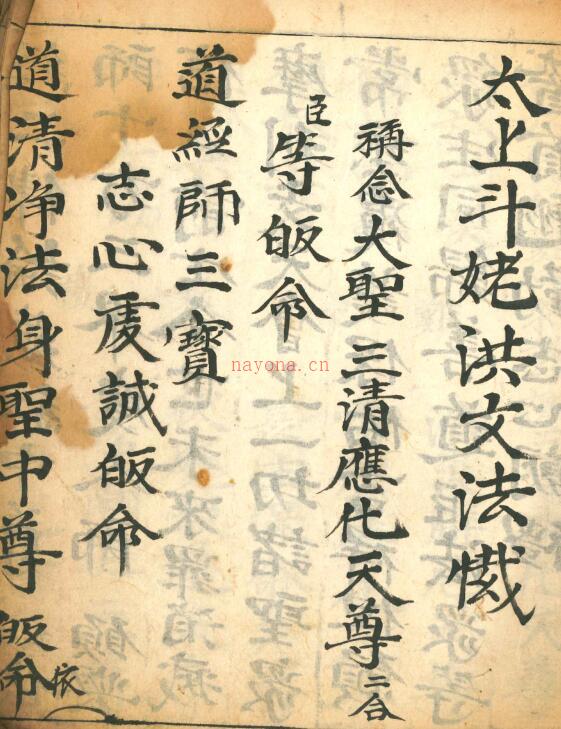 太上斗姥洪文法懺
稱念大聖三清應化天尊二合
臣等皈命
道經師三寶
志心虔誠皈命
道清净法身聖中尊皈命依
nayona.cn